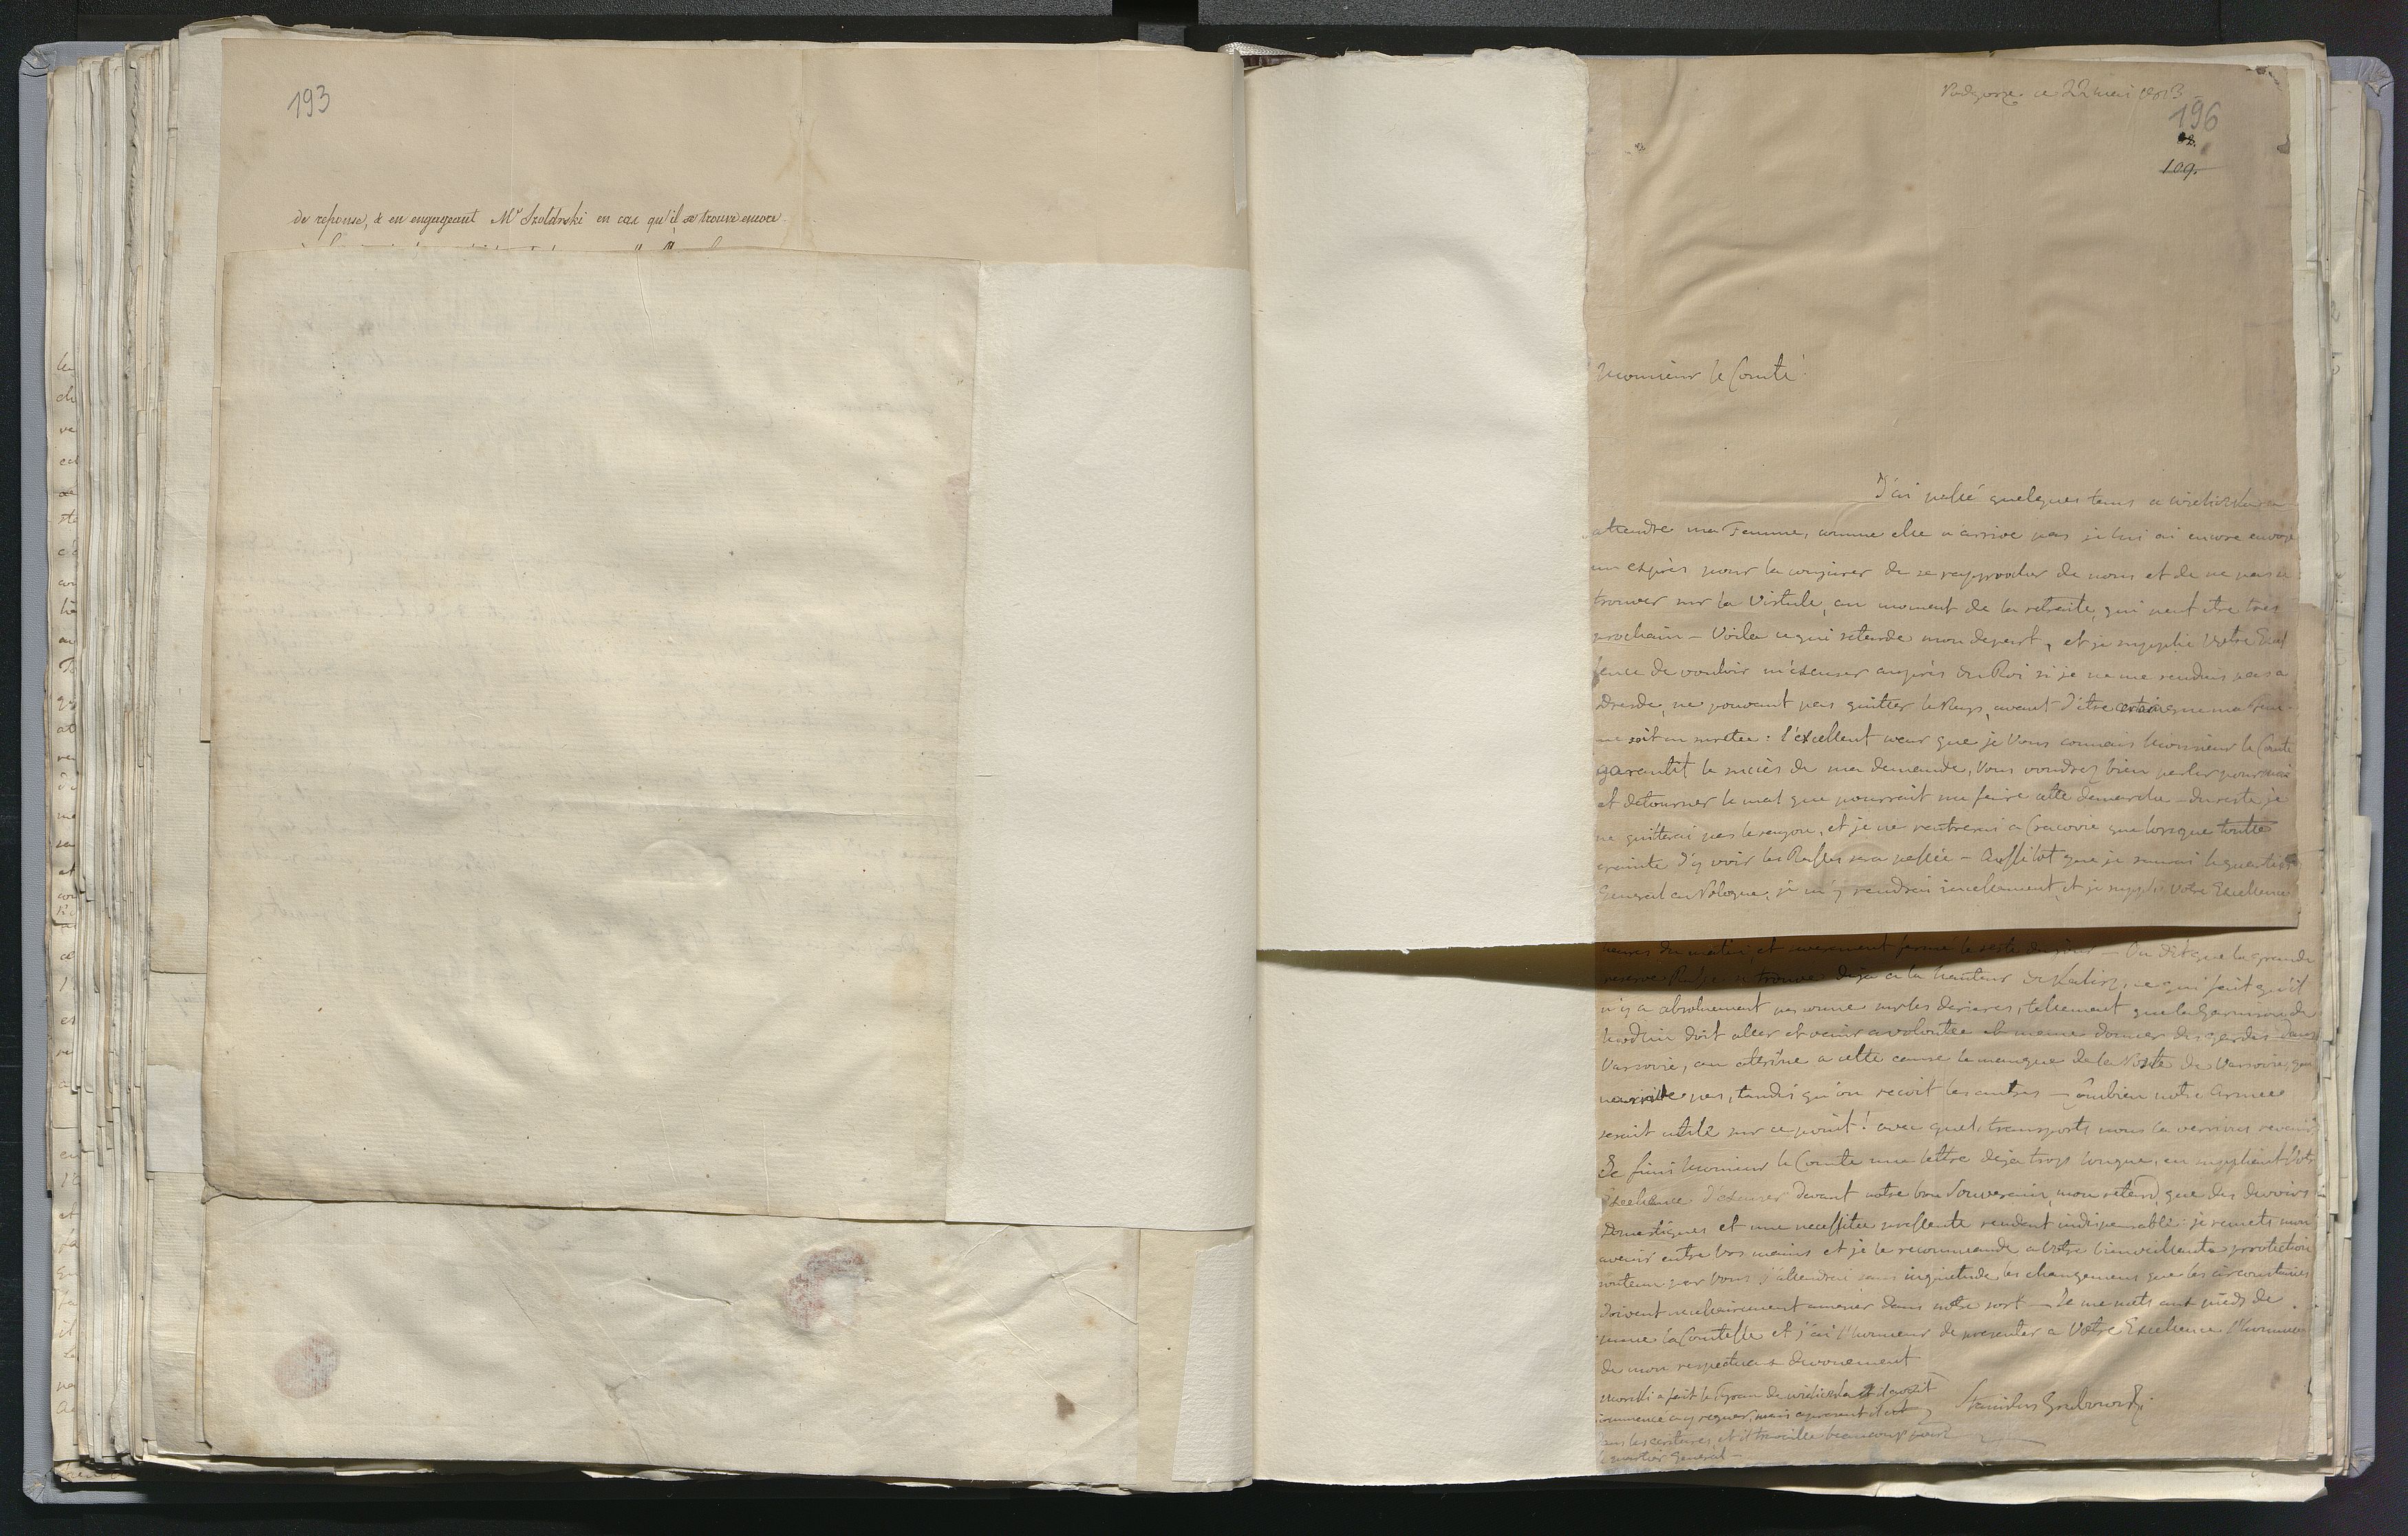 193
de reponse, & en engageant Mr Szoldrski en cas qu'il se trouve encore
Podgorze ce 22 mai 1813
196
109.
Monsieur le Comte!
J'ai passé quelques tems a
attendre ma Femme, comme elle n'arrive pas je lui ai encore envoyé
un exprès pour la conjurer de se rapprocher de nous et de ne pas se
trouver sur la Vistule, au moment de la retraite, qui peut etre très
prochain – Voila ce qui retarde mon depart, et je supplie Votre Excel
lence de vouloir m'excuser auprès du Roi si je ne me rendais pas a
Dresde, ne pouvant pas quitter le Pays, avant d'être certain que ma Fem-
me soit en suretée: l'excellent cœur que je Vous connais Monsieur le Comte
garantit le succès de ma demande, Vous voudrez bien parler pour moi
et detourner le mal que pourrait me faire cette demarche – du reste je
ne quitterai pas le rayon, et je ne rentrerai a Cracovie que lorsque toutte
crainte d'y voir les Russes sera passée – Aussitot que je saurai le quartier
General en Pologne, je m'y rendrai et je supplie Votre Excellence
heures du matin, et fermé le reste du jour – On dit que la grande
reserve Russe se trouve deja a la hauteur de Kalisz, ce qui fait qu'il
n'y a absolument personne sur les derieres, tellement que la Garnison de
Modlin doit aller et venir a volontée et meme donner des gardes dans
Varsovie, on a cette cause le manque de la Poste de Varsovie, qui
pas, tandis qu'on recoit les autres – Combien notre Armee
serait utile sur ce point! avec quels transports nous la verrions revenir,
Je finis Monsieur le Comte une lettre deja trop longue, en suppliant Votre
Excellence d'excuser devant notre bon Souverain, mon retard, que des devoirs
Domestiques et une necessitée pressente rendent indispensable: je remets mon
avenir entre Vos mains et je le recommande a Votre bienveillante protection
soutenu par Vous j'attendrai sans inquietude les changemens que les circonstances
doivent necessairement amener dans notre sort – Je me mets aux pieds de
Mme la Comtesse et j'ai l'honneur de presenter a Votre Excellence l'hommage
de mon respectueux devouement
Stanislas Grabowski
a fait le Tyran de et il avait
commencé a y regner, mais apresent il est
dans les ecritures, et il travaille beaucoup pour
quartier General –